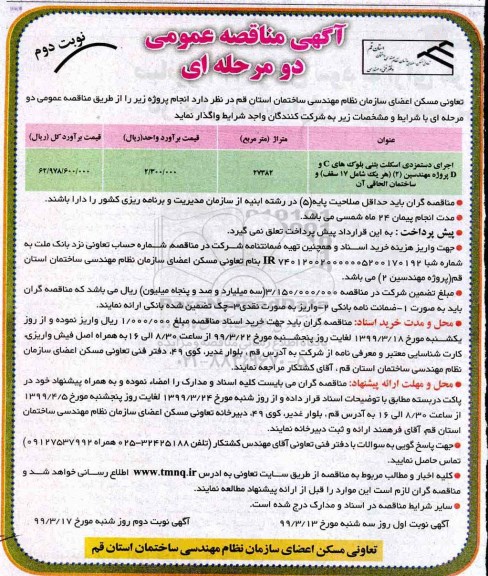 آگهی مناقصه عمومی
دو مرحله ای
نوبت دوم
استان قم
تعاونی مسکن اعضای سازمان نظام مهندسی ساختمان استان قم در نظر دارد انجام پروژه زیر را از طریق مناقصه عمومی دو
مرحله ای با شرایط و مشخصات زیر به شرکت کنندگان واجد شرایط واگذار نماید
عنوان متراژ (متر مربع) قیمت برآورد واحد(ریال) قیمت برآورد کل (ریال)
اجرای دستمزدی اسکلت بتنی بلوک های C و
D پروژه مهندسین (۲) (هر یک شامل ۱۷ سقف) و
ساختمان الحاقی آن
۲۷۳۸۲ ۲/۳۰۰/۰۰۰ ۶۲/۹۷۸/۶۰۰/۰۰۰
● مناقصه گران باید حداقل صلاحیت پایه(۵) در رشته ابنیه از سازمان مدیریت و برنامه ریزی کشور را دارا باشند.
● مدت انجام پیمان ۲۴ ماه شمسی می باشد.
● پیش پرداخت : به این قرارداد پیش پرداخت تعلق نمی گیرد.
● جهت واریز هزینه خرید اسناد و همچنین تهیه ضمانتنامه شرکت در مناقصه شماره حساب تعاونی نزد بانک ملت به
شماره شبا IR ۷۴۰۱۲۰۰۲۰۰۰۰۰۰۵۲۰۰۱۷۰۱۹۲ بنام تعاونی مسکن اعضای سازمان نظام مهندسی ساختمان استان
قم(پروژه مهندسین ۲) می باشد.
● مبلغ تضمین شرکت در مناقصه ۳/۱۵۰/۰۰۰/۰۰۰(سه میلیارد و صد و پنجاه میلیون) ریال می باشد که مناقصه گران
باید به صورت ۱-ضمانت نامه بانکی ۲-واریز به صورت نقدی۳-چک تضمین شده بانکی ارائه نمایند.
● محل و مدت خرید اسناد: مناقصه گران باید جهت خرید اسناد مناقصه مبلغ ۱/۰۰۰/۰۰۰ ریال واریز نموده و از روز
یکشنبه مورخ ۱۳۹۹/۳/۱۸ لغایت روز پنجشنبه مورخ ۹۹/۳/۲۲ از ساعت ۸/۳۰ الی ۱۶ به همراه اصل فیش واریزی،
کارت شناسایی معتبر و معرفی نامه از شرکت به آدرس قم، بلوار غدیر، کوی ۴۹، دفتر فنی تعاونی مسکن اعضای سازمان
نظام مهندسی ساختمان استان قم ، آقای کشتکار مراجعه نمایند.
● محل و مهلت ارائه پیشنهاد: مناقصه گران می بایست کلیه اسناد و مدارک را امضاء نموده و به همراه پیشنهاد خود در
پاکت دربسته مطابق با توضیحات اسناد قرار داده و از روز شنبه مورخ ۱۳۹۹/۳/۲۴ لغایت روز پنجشنبه مورخ ۱۳۹۹/۴/۵
از ساعت ۸/۳۰ الی ۱۶ به آدرس قم، بلوار غدیر، کوی ۴۹، دبیرخانه تعاونی مسکن اعضای سازمان نظام مهندسی ساختمان
استان قم، آقای فرهمند ارائه و ثبت دبیرخانه نمایند.
● جهت پاسخ گویی به سوالات با دفتر فنی تعاونی آقای مهندس کشتکار (تلفن ۳۲۴۲۵۱۸۸-۰۲۵ همراه ۰۹۱۲۷۵۳۷۹۹۲)
تماس حاصل نمایید.
● کلیه اخبار و مطالب مربوط به مناقصه از طریق سایت تعاونی به آدرس www.tmnq.ir اطلاع رسانی خواهد شد و
مناقصه گران لازم است این موارد را قبل از ارائه پیشنهاد مطالعه نمایند.
● سایر شرایط مناقصه در اسناد و مدارک درج شده است.
آگهی نوبت اول روز سه شنبه مورخ ۹۹/۳/۱۳ آگهی نوبت دوم روز شنبه مورخ ۹۹/۳/۱۷
تعاونی مسکن اعضای سازمان نظام مهندسی ساختمان استان قم